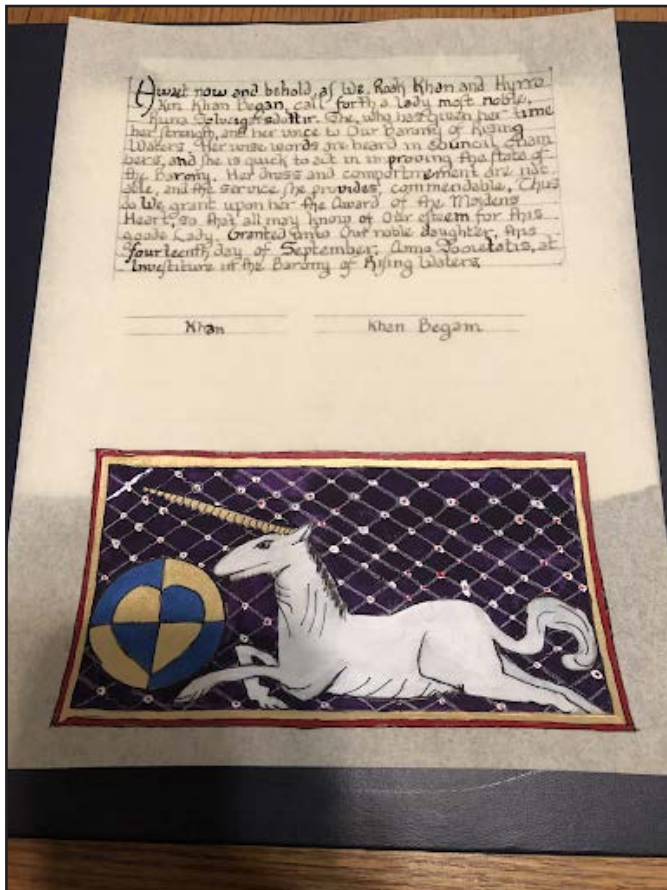 Await now and behold, as We, Rook Khan and Hyrro
kin Khan Begam, call forth a lady most noble,
Runa Solveigksdottir. She, who has given her time
her strength, and her voice to Our Barony of Rising
Waters. Her wise words are heard in council cham
bers, and she is quick to act in improving the state of
the Barony. Her dress and comportment are not
able, and the service she provides, commendable. Thus
do We grant upon her the Award of the Maidens
Heart, so that all may know of Our esteem for this
goode Lady. Granted unto Our noble daughter, this
fourteenth day of September, Anno Societatis, at
Investiture in the Barony of Rising Waters.
Khan
Khan Begam